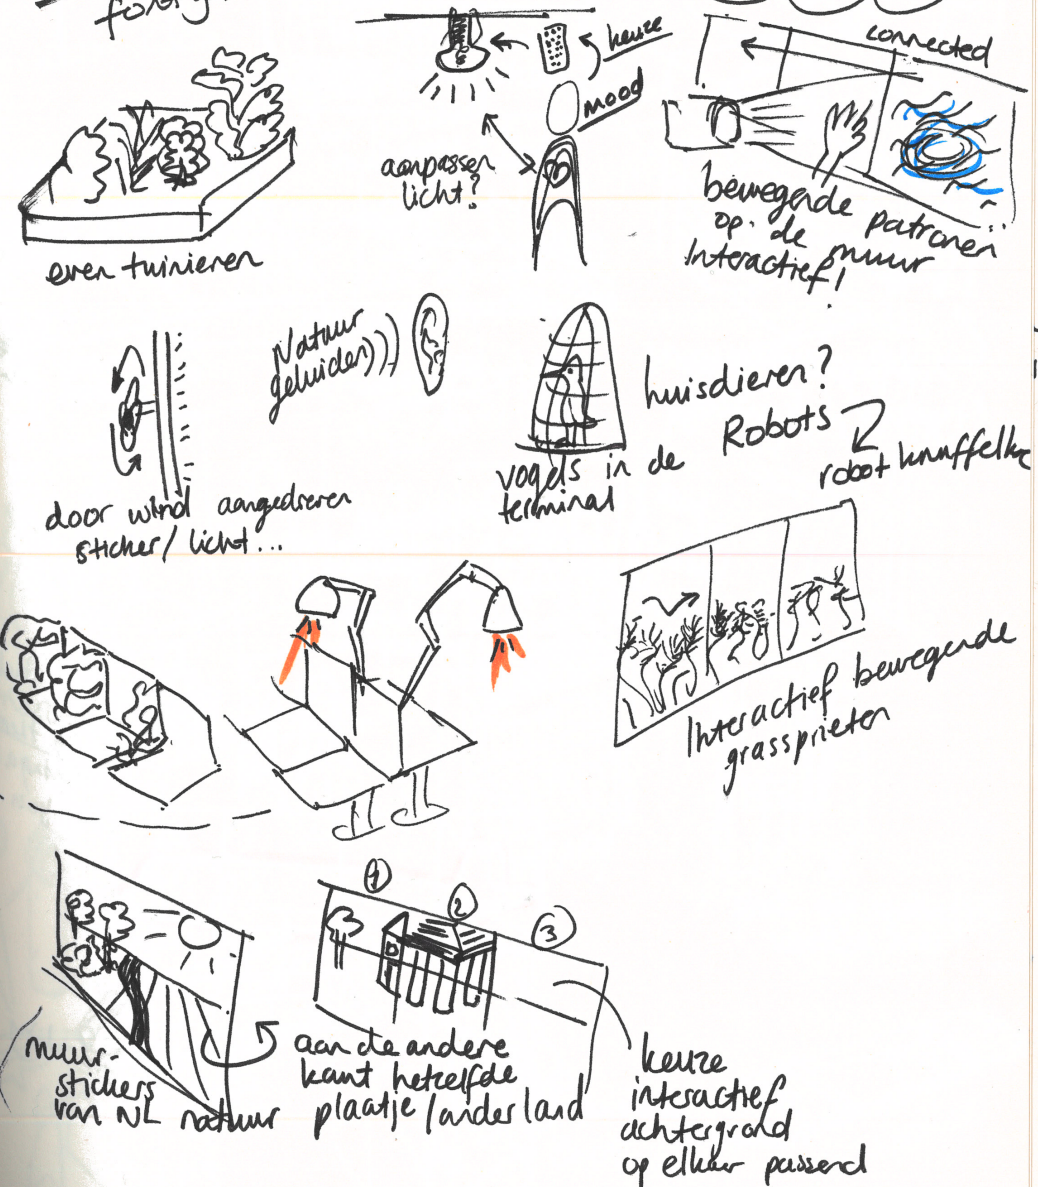 keuze
connected
mood
aanpassen
licht?
bewegende patronen
op de muur
Interactief!
even tuinieren
Natuur
geluiden
huisdieren?
Robots
vogels in de
terminal
door wind aangedreven
sticker/licht...
Interactief bewegende
grassprieten
1
2
3
muur-
stickers
van NL natuur
aan de andere
kant hetzelfde
plaatje/ander land
keuze
interactief
achtergrond
op elkaar passend